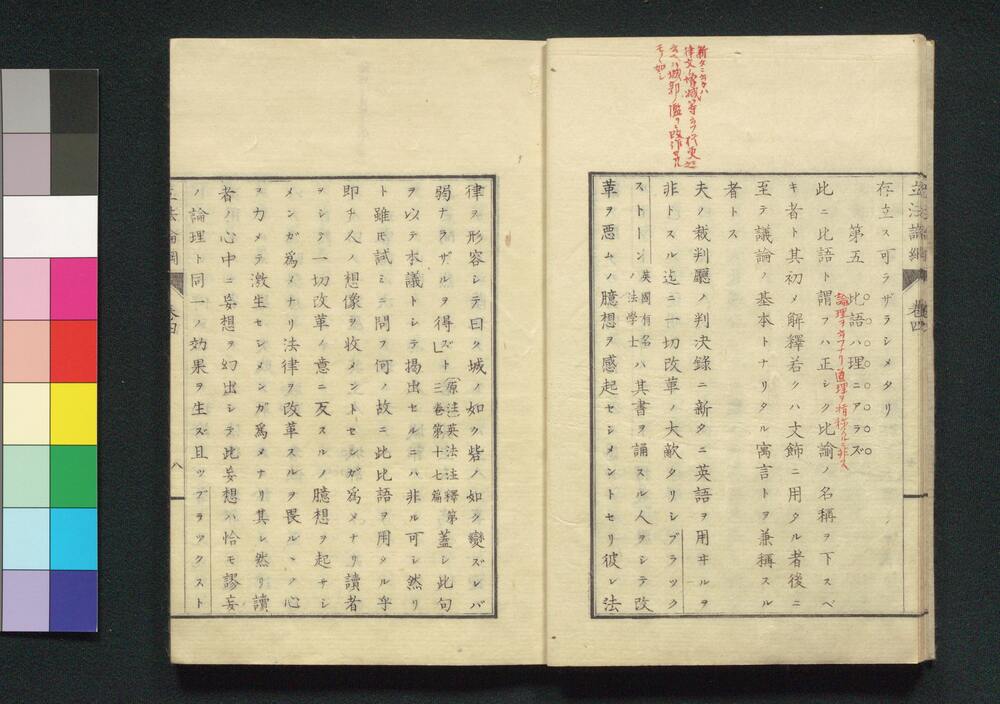 立法論綱 卷四
存立ス可ラザラシメタリ
第五 比語ハ理ニアラズ
此ニ比語ト謂フハ正シク比諭ノ名稱ヲ下スベ
キ者ト其初メ解釋若クハ文飾ニ用タル者後ニ
至テ議論ノ基本トナリタル寓言トヲ兼稱スル
者トス
夫ノ裁判廳ノ判決録ニ新タニ英語ヲ用ヰルヲ
非トスル迄ニ一切改革ノ大敵タリシブラツク
ストーン英國有名ノ法学士ハ其書ヲ誦スル人ヲシテ改
革ヲ悪ムノ臆想ヲ感起セシメントセリ彼レ法
律ヲ形容シテ曰ク城ノ如ク砦ノ如ク變ズレバ
弱ナラザルヲ得ズト〔原注〕英法注釋第三卷第十七篇 蓋シ此句
ヲ以テ本議トシテ掲出セルニハ非ル可シ然リ
ト雖モ試ミニ問フ何ノ故ニ此比語ヲ用タル乎
即チ人ノ想像ヲ收メントセンガ爲メナリ讀者
ヲシテ一切改革ノ意ニ反スルノ臆想ヲ起サシ
メンガ爲メナリ法律ヲ改革スルヲ畏ルヽノ心
ヲ力メテ激生セシメンガ爲メナリ其レ然リ讀
者ノ心中ニ妄想ヲ幻出シテ此妄想ハ恰モ謬妄
ノ論理ト同一ノ効果ヲ生ズ且ツブラツクスト
立法論綱 卷四 八